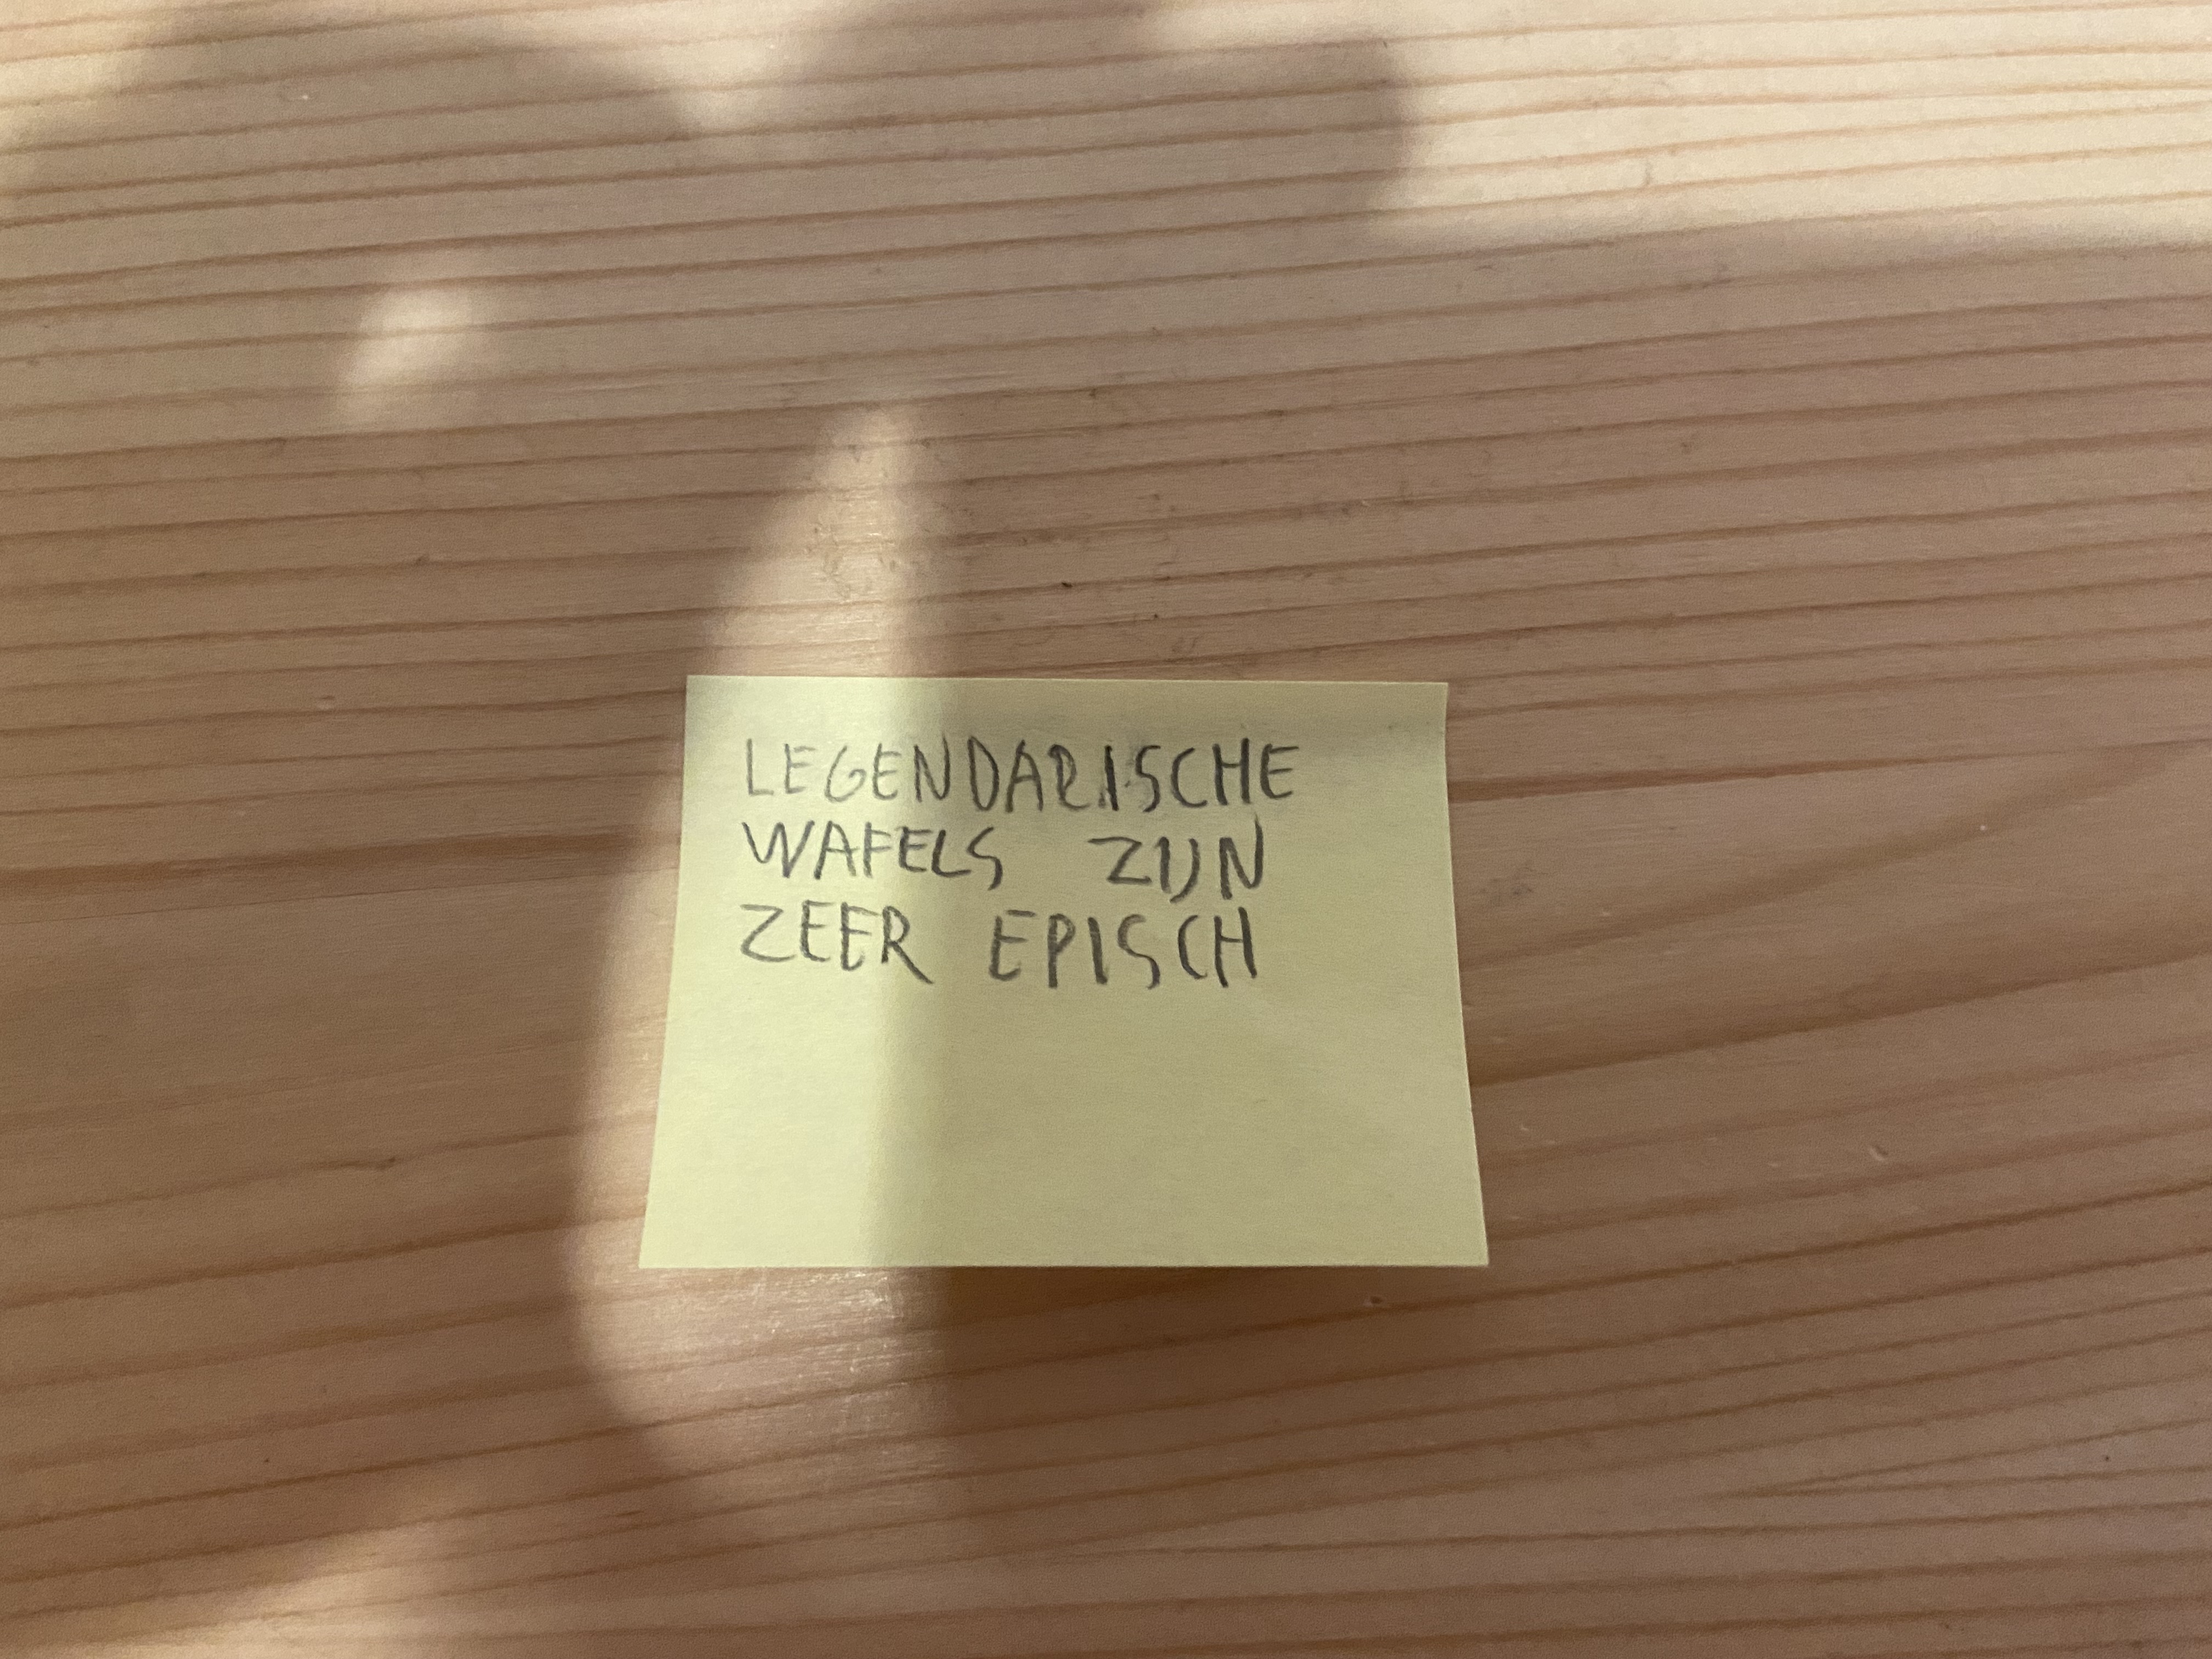 LEGENDARISCHE
WAFELS ZIJN
ZEER EPISCH